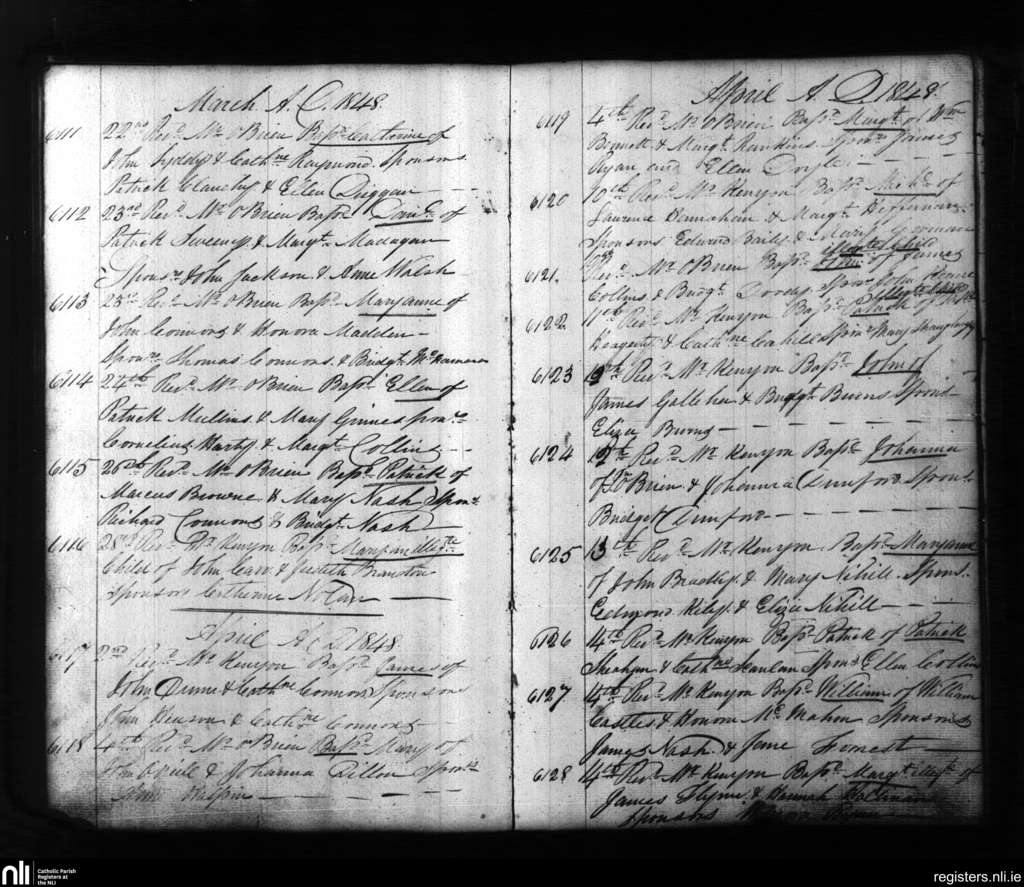 March A. D. 1848.
6111 22nd Revd. Mr. O'Brien Bapd. Catherine of
John & Cathne Raymond. Sponsors
Patrick Clanchy & Ellen Duggan
6112 23rd Revd. Mr. O'Brien Bapd. Danl. of
Patrick Sweeney & Margt. Madagan
Sponsrs John Jackson & Anne Walsh
6113 23rd Revd. Mr. O'Brien Bapd. Maryanne of
John Connors & Honora Madden
Sponrs. Thomas Connors & Bridgt. McNamara
6114 24th Revd. Mr. O'Brien Bapd. Ellen of
Patrick Mullins & Mary sponrs
Cornelius Harty & Margt. Collins
6115 26th Revd. Mr. O'Brien Bapd. Patrick of
Marcus Browne & Mary Nash Sponr.
Richard Connors & Bridgt. Nash
6116 28th Revd. Mr. Kenyon Bapd. Maryan illegte
Child of John Carr & Judith
Sponsors Catherine Nolan
April A. D. 1848
6117 2nd Revd. Mr. Kenyon Bapd. James of
John Dunne & Cathne Connors Sponsors
John & Cathne Connors
6118 4th Revd. Mr. O'Brien Bapd. Mary of
John O'Neill & Johanna Dillon Sponrs
April A. D. 1848.
6119 4th Revd. Mr. O'Brien Bapd. Margt. of Wm
Bennett & Margt. Hankins Sponrs James
Ryan and Ellen Doyle
6120 10th Revd. Mr. Kenyon Bapd. Michl. of
Laurence & Margt. Heffernan
Sponsors Edward & Mary
6121. Revd. Mr. O'Brien Bapd. of James
Collins & Bridgt. Sponr John
6122 11th Revd. Mr. Kenyon Bapd. Patrick of
& Cathne Sponr Mary
6123 12th Revd. Mr. Kenyon Bapd. John of
James Gallaher & Bridgt. Burns Sponrs
Eliza Burns
6124 12th Revd. Mr. Kenyon Bapd. Johanna
of O'Brien & Johanna Dunford Sponrs
Bridget Dunford
6125 13th Revd. Mr. Kenyon Bapd. Maryanne
of John Bradly & Mary Nihill. Spons.
Edmond Kiley & Eliza Nihill
6126 14th Revd. Mr. Kenyon Bapd. Patrick of Patrick
& Cathne Hanlan Spons Ellen Collins
6127 14th Revd. Mr. Kenyon Bapd. William of William
Castles & Honora McMahon Sponsors
James Nash & Jane Forrest
6128 14th Revd. Mr. Kenyon Bapd. Margt. illegt. of
James Flynn & Hannah
Sponsors
nli
Catholic Parish
Registers at
the NLI
registers.nli.ie